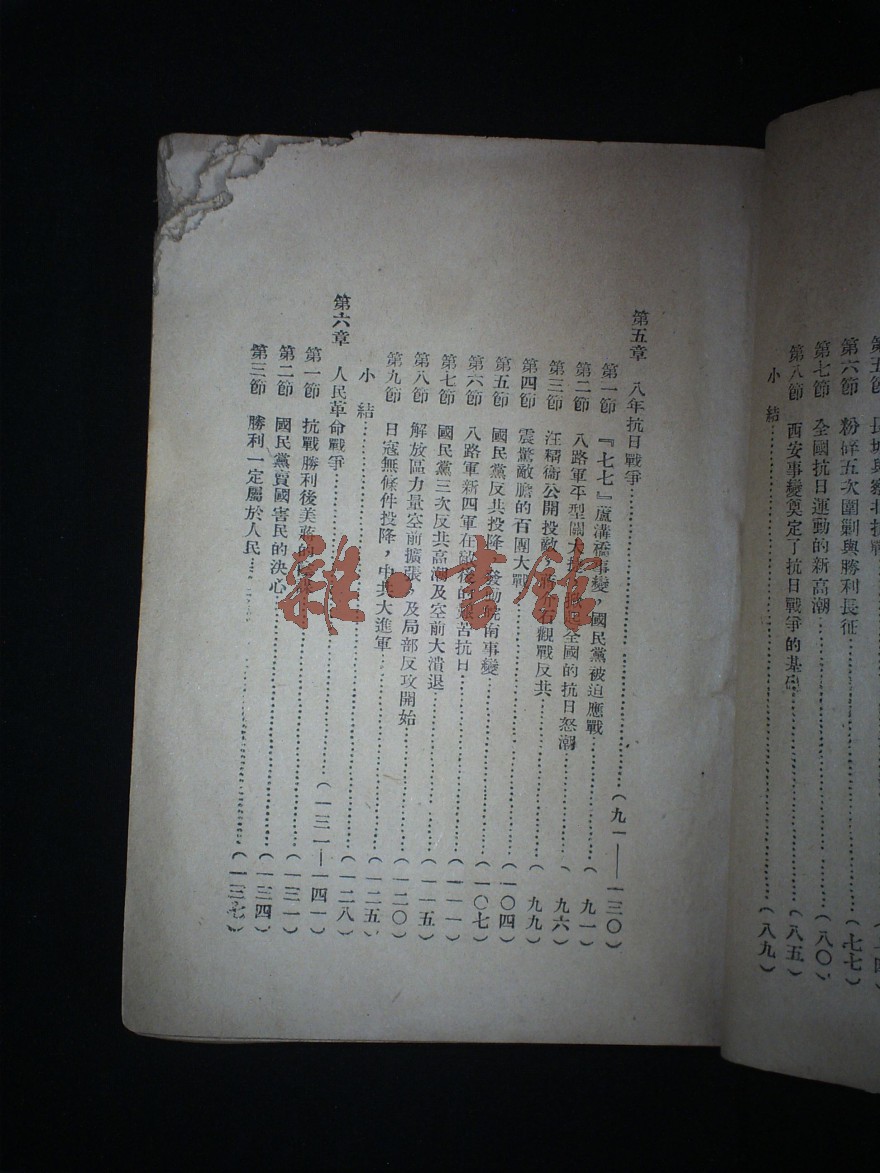 北抗戰
第六節 粉碎五次圍剿與勝利長征………(七七)
第七節 全國抗日運動的新高潮………(八〇)
第八節 西安事變奠定了抗日戰爭的基………(八五)
小結………(八九)
第五章 八年抗日戰爭………(九一——一三〇)
第一節 『七七』蘆溝橋事變 國民黨被迫應戰………(九一)
第二節 八路軍平型關大 全國的抗日怒潮………(九六)
第三節 汪精衛公開投敵 觀戰反共………(九九)
第四節 震驚敵膽的百團大戰………(一〇四)
第五節 國民黨反共投降 發動皖南事變………(一〇七)
第六節 八路軍新四軍在敵後的艱苦抗日………(一一一)
第七節 國民黨三次反共高潮及空前大潰退………(一一五)
第八節 解放區力量空前擴張,及局部反攻開始………(一二〇)
第九節 日寇無條件投降,中共大進軍………(一二五)
小結………(一二八)
第六章 人民革命戰爭………(一三一—一四一)
第一節 抗戰勝利後美蔣的………(一三一)
第二節 國民黨賣國害民的決心………(一三四)
第三節 勝利一定屬於人民………(一三七)
雜·書館